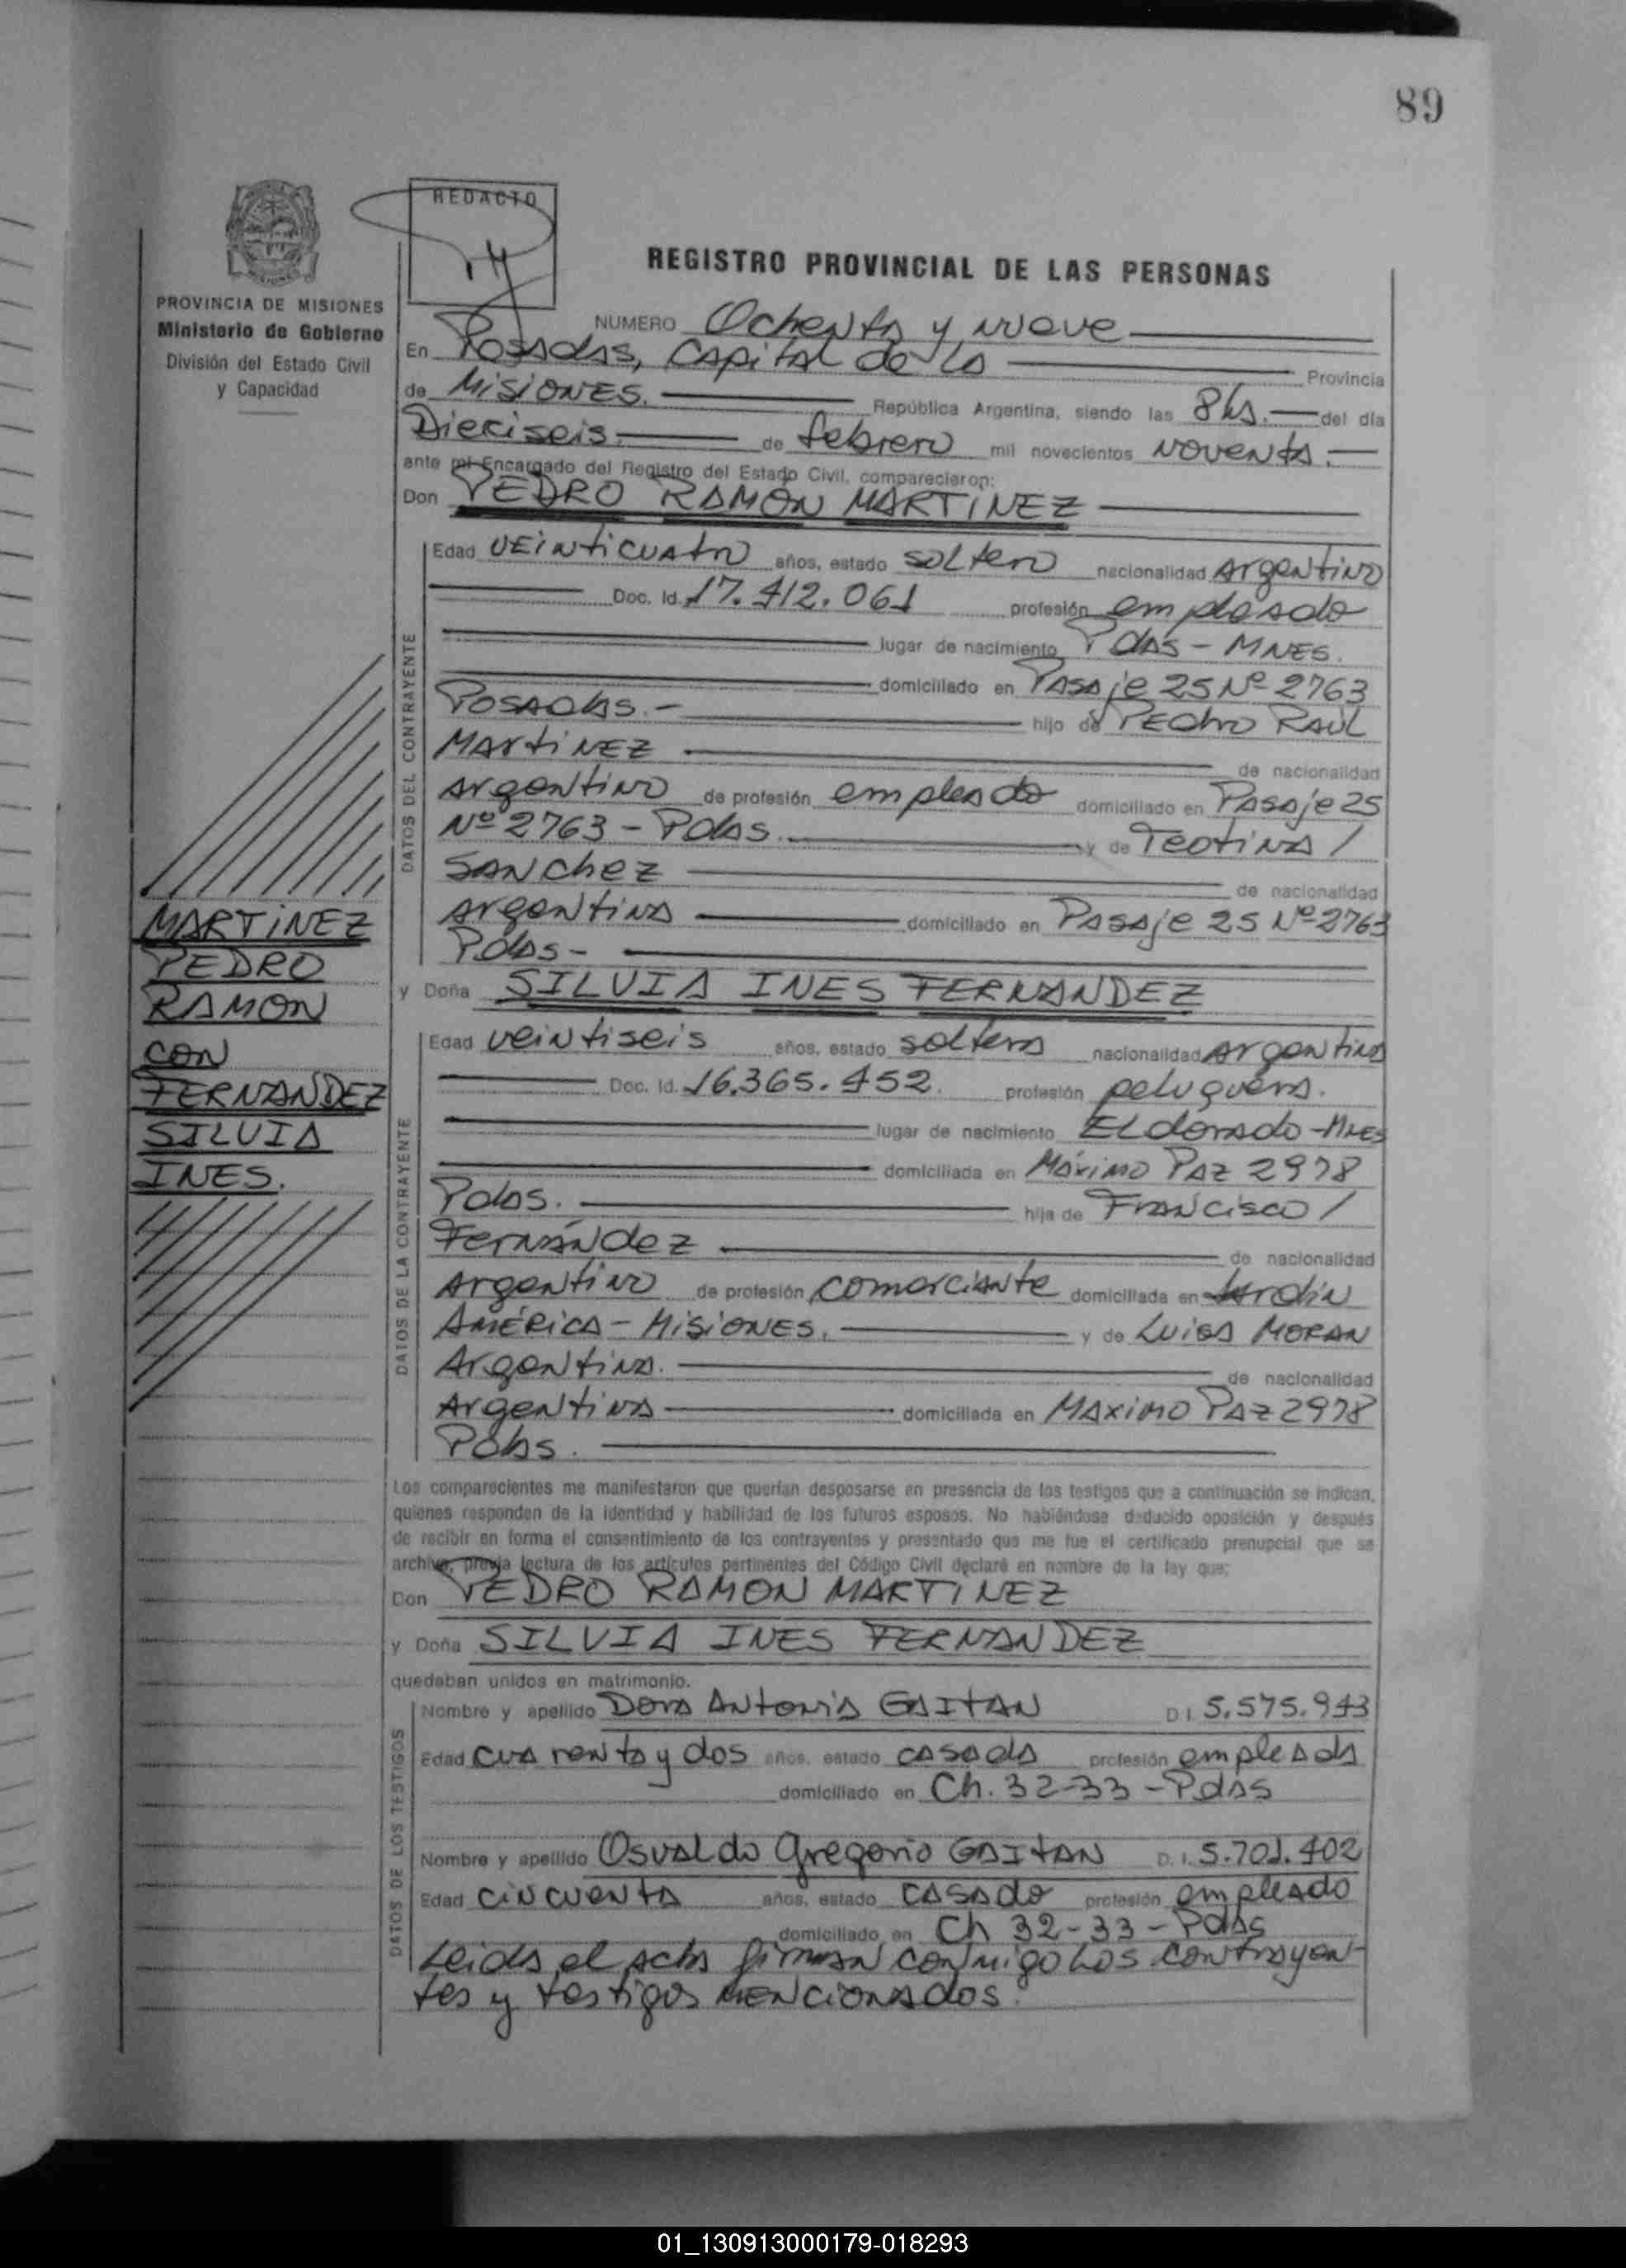 89
REDACTO
14
PROVINCIA DE MISIONES
Ministerio de Gobierno
División del Estado Civil
y Capacidad
REGISTRO PROVINCIAL DE LAS PERSONAS
NUMERO Ochenta y nueve
En Posadas, Capital de la Provincia
de Misiones. República Argentina, siendo las 8hs. del día
Dieciseis. de febrero mil novecientos noventa.
ante mí Encargado del Registro del Estado Civil, comparecieron:
Don PEDRO RAMON MARTINEZ
DATOS DEL CONTRAYENTE
Edad veinticuatro años, estado soltero nacionalidad Argentino
Doc. Id. 17.412.061 profesión empleado
lugar de nacimiento Pdas - MNES.
domiciliado en Pasaje 25 Nº 2763
Posadas.- hijo de Pedro RAUL
Martinez de nacionalidad
argentino de profesión empleado domiciliado en Pasaje 25
Nº 2763 - Pdas. y de Teotina /
Sanchez de nacionalidad
argentina domiciliado en Pasaje 25 Nº 2763
Pdas-
y Doña SILVIA INES FERNANDEZ
MARTINEZ
PEDRO
RAMON
CON
FERNANDEZ
SILVIA
INES.
DATOS DE LA CONTRAYENTE
Edad veintiseis años, estado soltera nacionalidad Argentina
Doc. Id. 16.365.452. profesión peluquera.
lugar de nacimiento ELdorado - Mnes
domiciliada en Máximo Paz 2978
Pdas. hija de Francisco /
Fernández de nacionalidad
Argentino de profesión comerciante domiciliada en Jardin
América - Misiones. y de Luisa Moran
Argentina. de nacionalidad
Argentina domiciliada en Maximo Paz 2978
Pdas.
Los comparecientes me manifestaron que querían desposarse en presencia de los testigos que a continuación se indican,
quienes responden de la identidad y habilidad de los futuros esposos. No habiéndose deducido oposición y después
de recibir en forma el consentimiento de los contrayentes y presentado que me fue el certificado prenupcial que se
archiva, previa lectura de los artículos pertinentes del Código Civil declaré en nombre de la ley que:
Don PEDRO RAMON MARTINEZ
y Doña SILVIA INES FERNANDEZ
quedaban unidos en matrimonio.
DATOS DE LOS TESTIGOS
Nombre y apellido Dora Antonia GAITAN D.I. 5.575.943
Edad cuarenta y dos años, estado casada profesión empleada
domiciliado en Ch. 32-33 - Pdas
Nombre y apellido Osvaldo Gregorio GAITAN D.I. 5.701.402
Edad cincuenta años, estado casado profesión empleado
domiciliado en Ch 32-33 - Pdas
Leida el acta firman conmigo los contrayen-
tes y testigos mencionados.
01_130913000179-018293